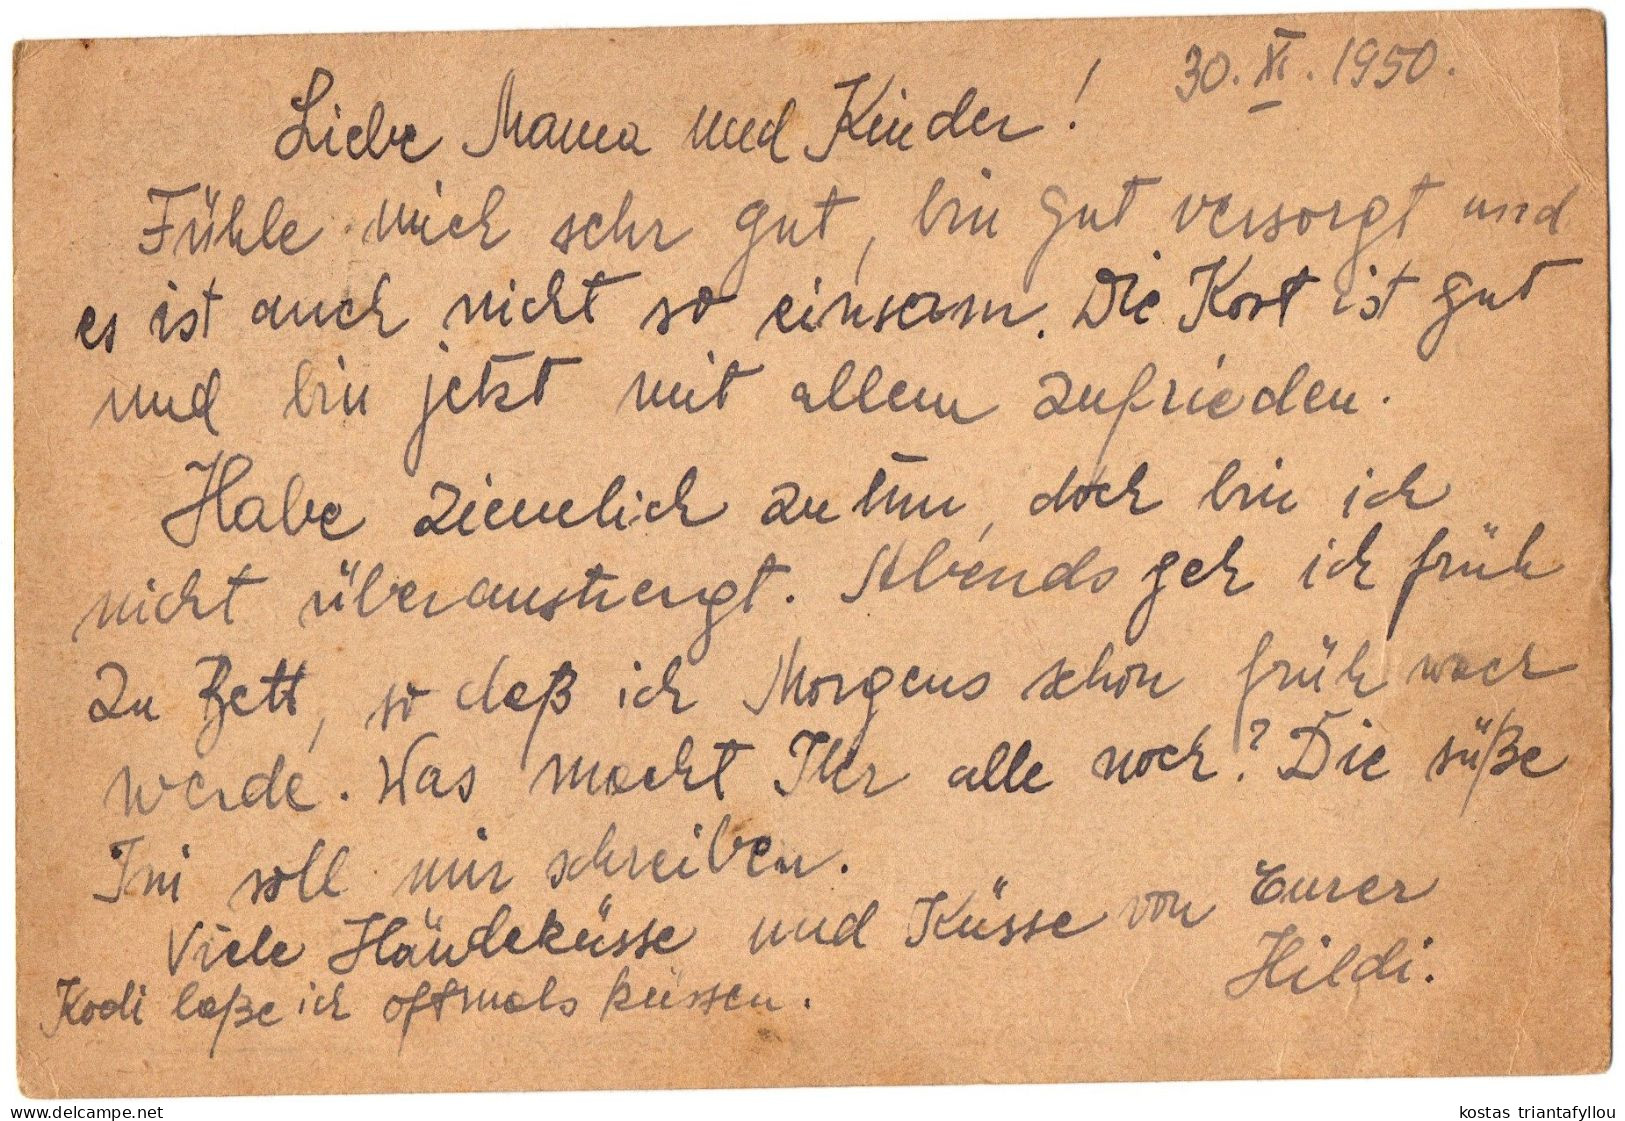 30. XI. 1950.
Liebe Mama und Kinder!
Fühle mich sehr gut, bin gut versorgt und
es ist auch nicht so einsam. Die Kost ist gut
und bin jetzt mit allem zufrieden.
Habe ziemlich zu tun, doch bin ich
nicht überanstrengt. Abends geh ich früh
zu Bett, so daß ich Morgens schon früh wach
werde. Was macht Ihr alle noch? Die süße
Ini soll mir schreiben.
Viele Händeküsse und Küsse von Eurer
Hildi.
Kodi laße ich oftmals küssen.
delcampe.net
kostas triantafyllou